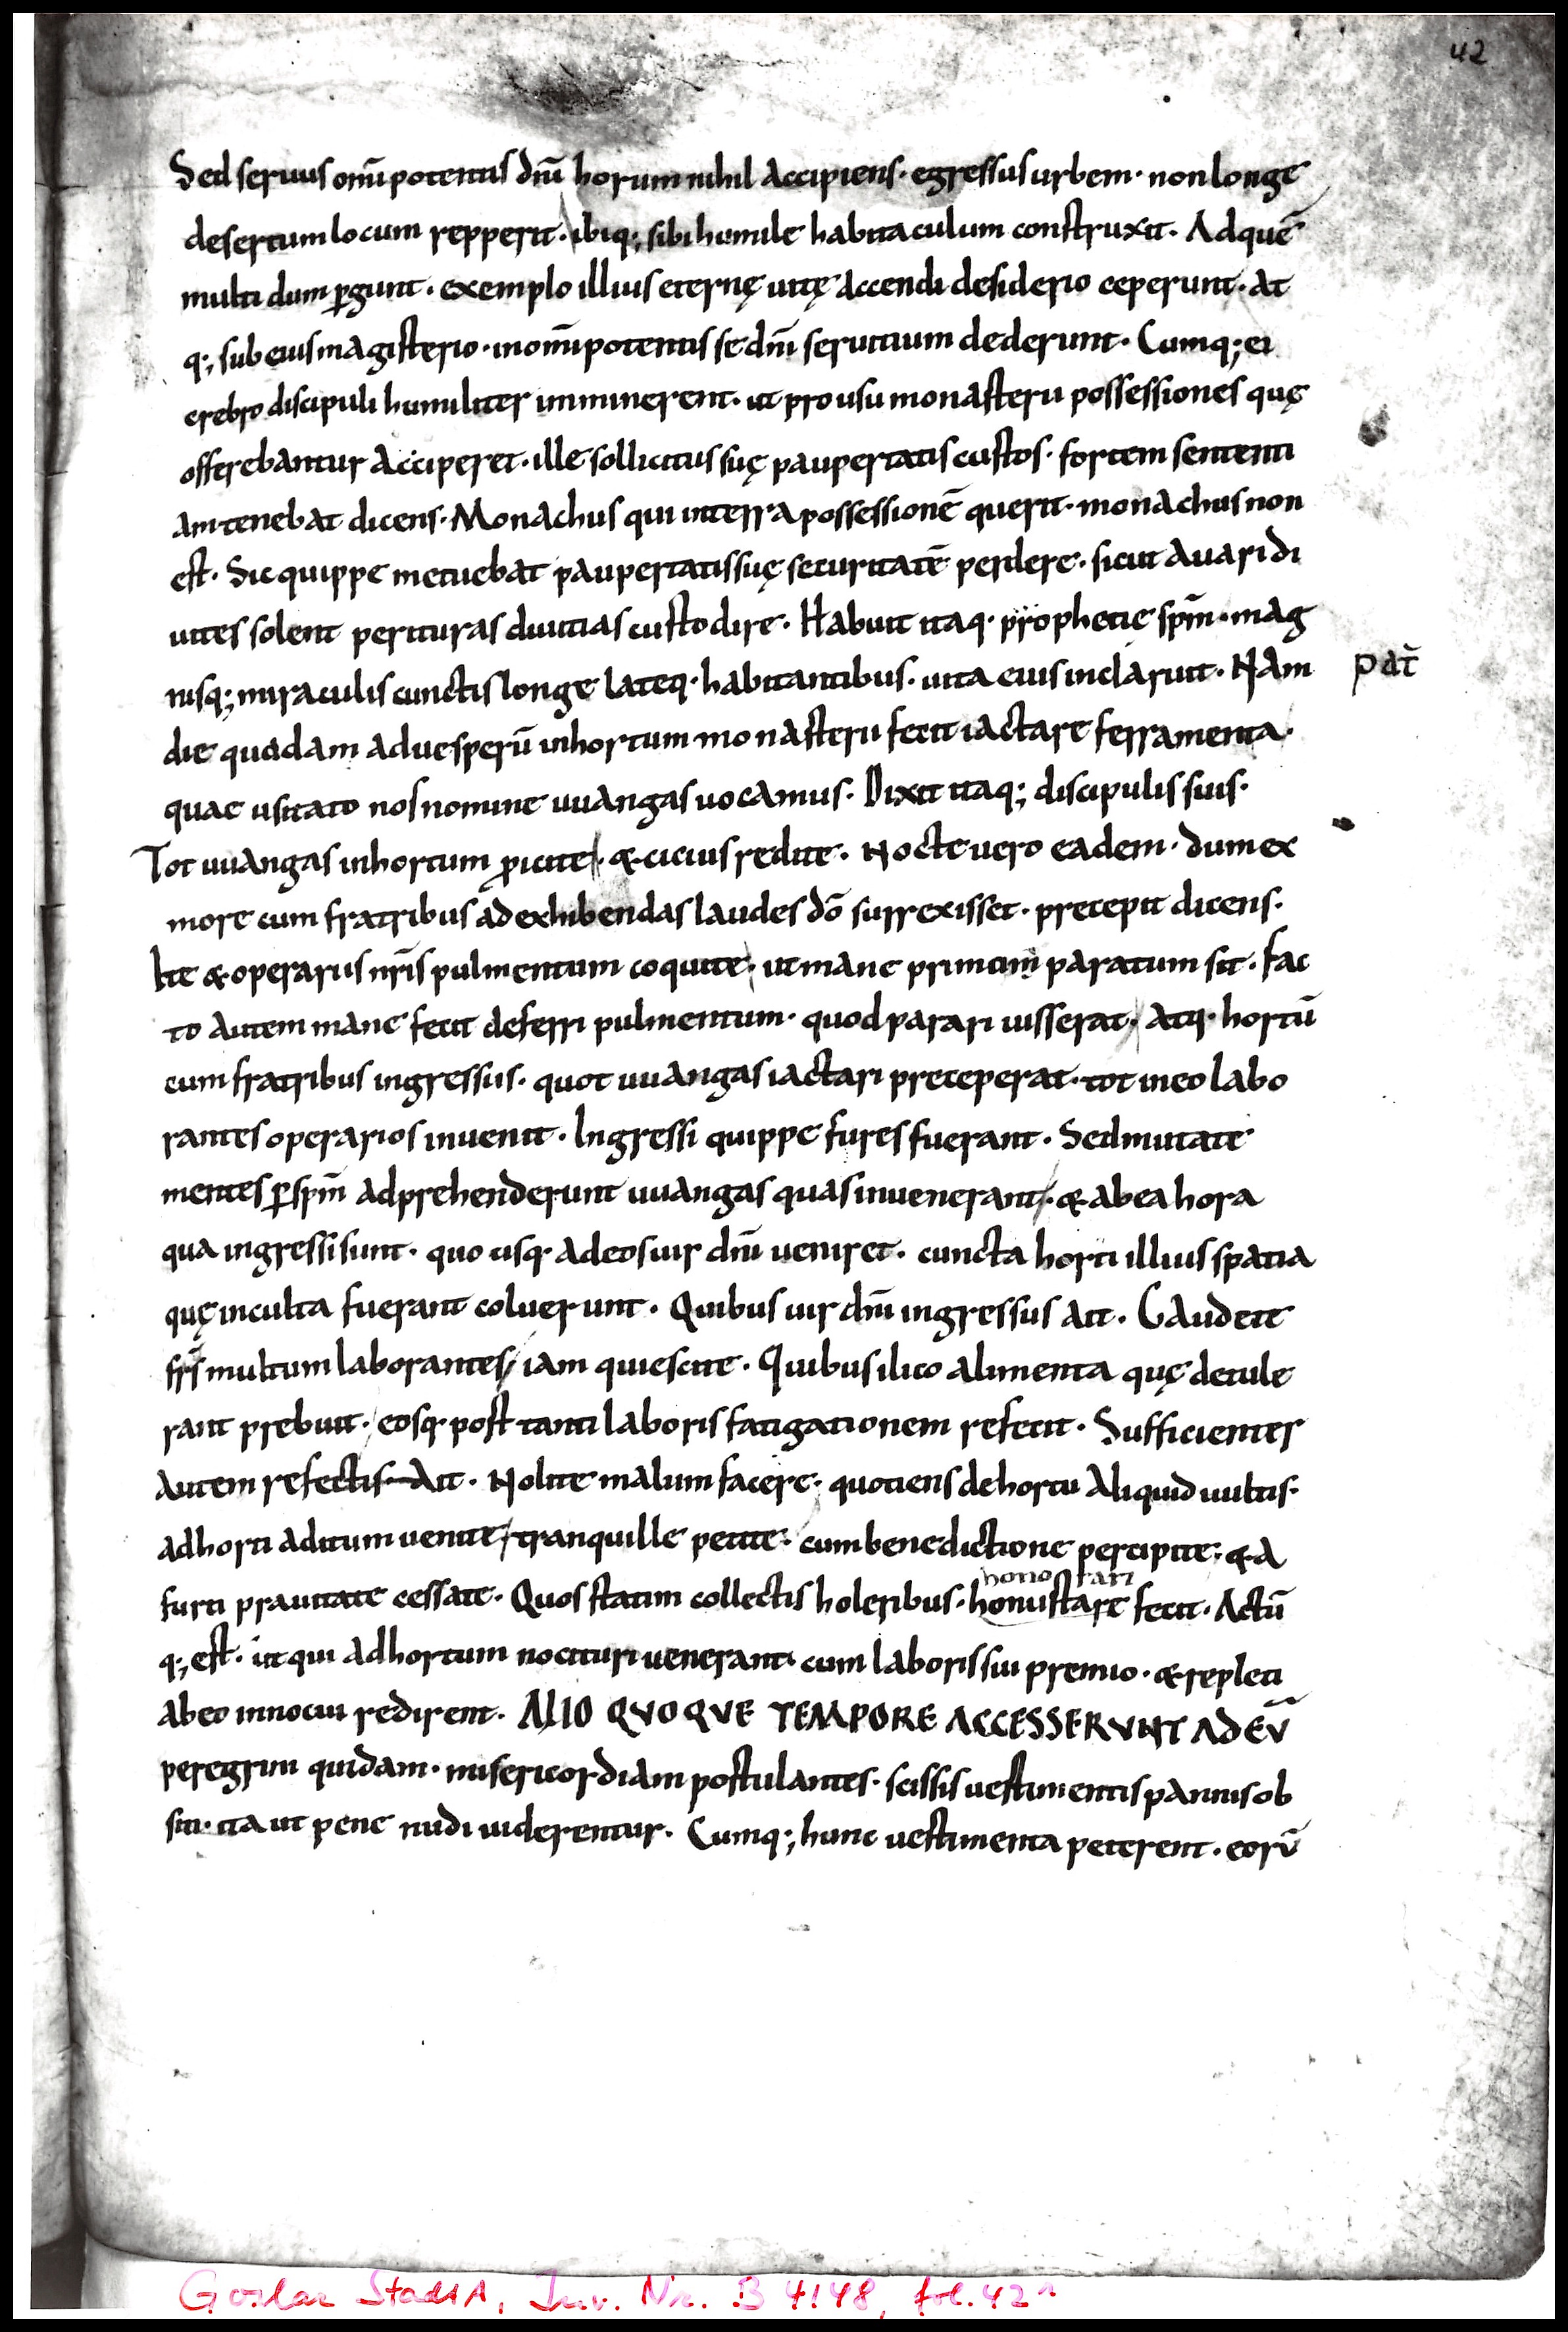 42
Sed seruus om̄ipotentis dn̄i horum nihil accipiens · egressus urbem · non longe
desertum locum repperit · ibiq; sibi humile habitaculum construxit · Adquē
multi dum ꝑgunt · exemplo illius eternę uitę accendi desiderio ceperunt · at
q; sub eius magisterio · in om̄ipotentis se dn̄i seruitium dederunt · Cumq; ei
crebro discipuli humiliter imminerent · ut pro usu monasterii possessiones quę
offerebantur acciperet · ille sollicitus suę paupertatis custos · fortem sententi
am tenebat dicens · Monachus qui in terra possessionē querit · monachus non
est · Sic quippe metuebat paupertatis suę securitatē perdere · sicut auari di
uites solent perituras diuitias custodire · Habuit itaq· prophetie spm̄ · mag
nisq; miraculis cunctis longe lateq· habitantibus · uita eius inclaruit · Nam
pat̄
die quadam ad uesperū in hortum monasterii fecit iactare ferramenta·
quae usitato nos nomine uuangas uocamus · Dixit itaq; discipulis suis·
Tot uuangas in hortum ꝓicite · & cicius redite · Nocte uero eadem · dum ex
more cum fratribus ad exhibendas laudes dō surrexisset · precepit dicens·
Ite & operariis nr̄is pulmentum coquite · ut mane primum paratum sit · fac
to autem mane fecit deferri pulmentum · quod parari iusserat · atq· hortū
cum fratribus ingressus · quot uuangas iactari preceperat · tot in eo labo
rantes operarios inuenit · Ingressi quippe fures fuerant · Sed mutate
mentes ꝑ spm̄ adprehenderunt uuangas quas inuenerant · & ab ea hora
qua ingressi sunt · quo usq· ad eos uir dn̄i ueniret · cuncta horti illius spatia
quę inculta fuerant coluerunt · Quibus uir dn̄i ingressus ait · Gaudete
fr̄s multum laborantes / iam quiescite · Quibus ilico alimenta quę detule
rant prebuit · eosq· post tanti laboris fatigationem refecit · Sufficienter
autem refectis ait · Nolite malum facere · quotiens de hortu aliquid uultis·
ad horti aditum uenite / tranquille petite · cum benedictione percipite · & a
hono rari
furti prauitate cessate · Quos statim collectis holeribus · honustare fecit · Actū
q; est · ut qui ad hortum nocituri uenerant · cum laboris sui premio · & repleti
ab eo innocui redirent · ALIO QVOQVE TEMPORE ACCESSERVNT AD EV̄
peregrini quidam · misericordiam postulantes · scissis uestimentis pannis ob
siti · ita ut pene nudi uiderentur · Cumq; hunc uestimenta peterent · eorū
Goslar StadtA, Inv. Nr. B 4148, fol. 42r